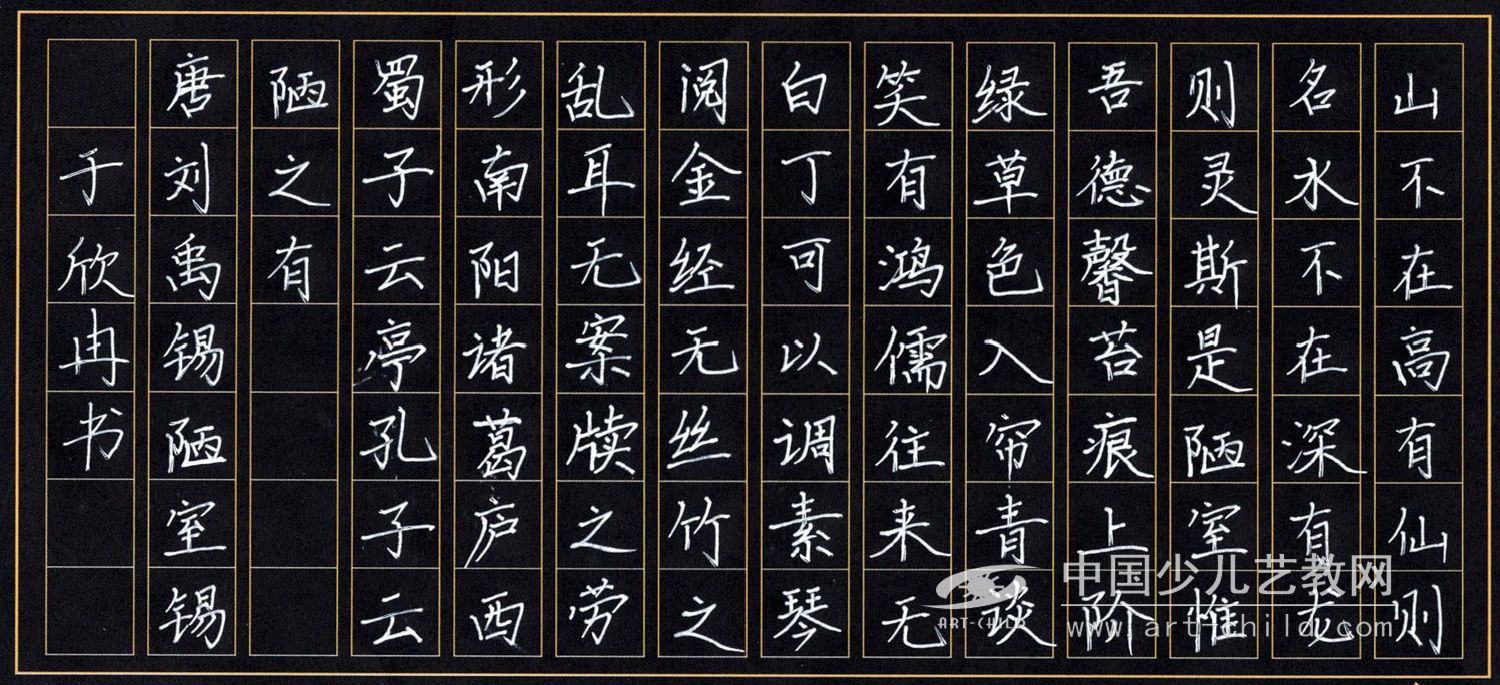 山不在高有仙则
名水不在深有龙
则灵斯是陋室惟
吾德馨苔痕上阶
绿草色入帘青谈
笑有鸿儒往来无
白丁可以调素琴
阅金经无丝竹之
乱耳无案牍之劳
形南阳诸葛庐西
蜀子云亭孔子云
陋之有
唐刘禹锡陋室锡
于欣冉书
中国少儿艺教网
ART-CHILD
www.art-child.com